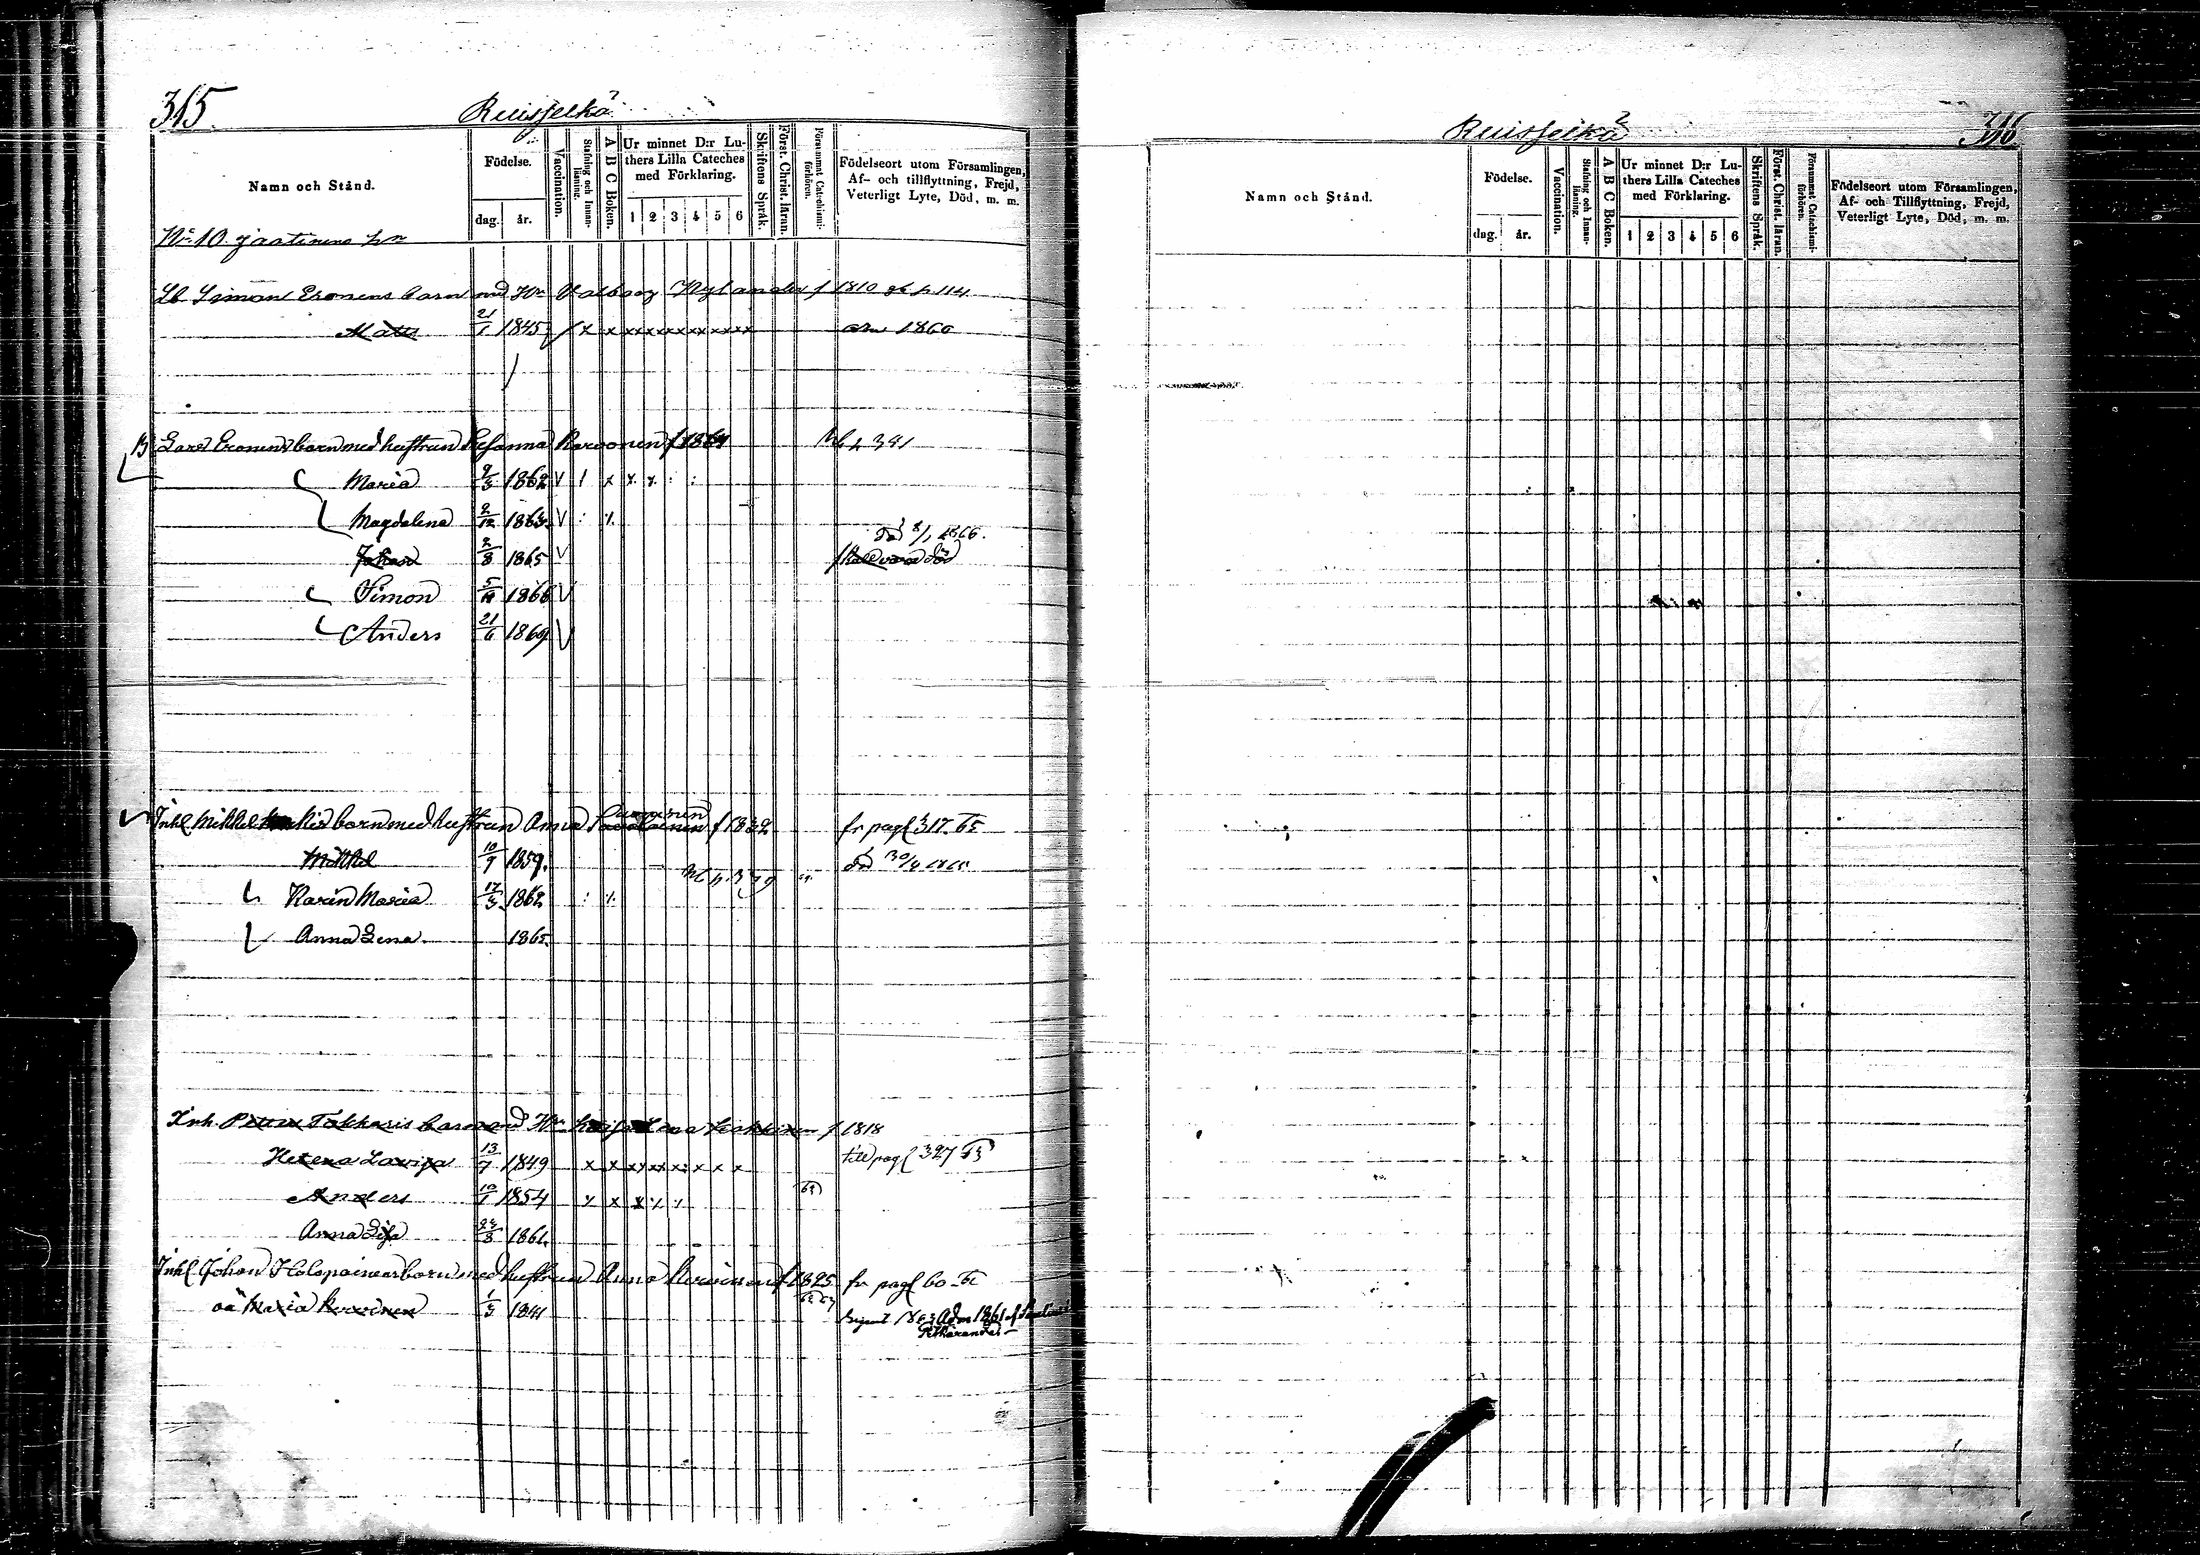 315.
Ruisselkä
Namn och Stånd.
Födelse.
dag.
år.
Vaccination.
Stafning och Innan-läsning.
A B C Boken.
Ur minnet D:r Lu-
thers Lilla Cateches
med Förklaring.
1 2 3 4 5 6
Skriftens Språk.
Först. Christ. läran.
Försummat Catechismi-förhören.
Födelseort utom Församlingen,
Af- och tillflyttning, Frejd,
Veterligt Lyte, Död, m. m.
No 10 Jaatinens
Simon Eronens barn med Hu Valborg Nylander f 1810 114
Matts 21/1 1845 / x x xxxxxxxxxxx adm 1860
Lars Eronens barn med hustrun Susanna Karvonen f 1864 p 341
Maria 2/3 1862 V 1 x x x
Magdalena 2/12 1863 V
död 8/1 1866.
Johan 2/8 1865 V skall vara död
Simon 5/12 1866 V
Anders 21/6 1869 V
Inh Mikkel barn med hustrun Anna f 1832 fr pag 317. 65
Mikkel 10/9 1859. död 30/4 1865
p. 379
Karin Maria 17/3 1862
Anna Lena 1865.
Inh. Petter Tukharis barn med Hu Lena f 1818
Helena Lovisa 13/7 1849 x x xxxxx x x x till pag 327 65
Anders 10/1 1854 x x x x x
Anna Lisa 23/8 1861.
Inh Johan Holopainens barn med hustrun Anna f 1825 fr pag 60 - 61
oä Maria 1/3 1841 1863 Adm 1861 af
316
Ruisselkä
Namn och Stånd.
Födelse.
dag.
år.
Vaccination.
Stafning och Innan-läsning.
A B C Boken.
Ur minnet D:r Lu-
thers Lilla Cateches
med Förklaring.
1 2 3 4 5 6
Skriftens Språk.
Först. Christ. läran.
Försummat Catechismi-förhören.
Födelseort utom Församlingen,
Af- och Tillflyttning, Frejd,
Veterligt Lyte, Död, m. m.